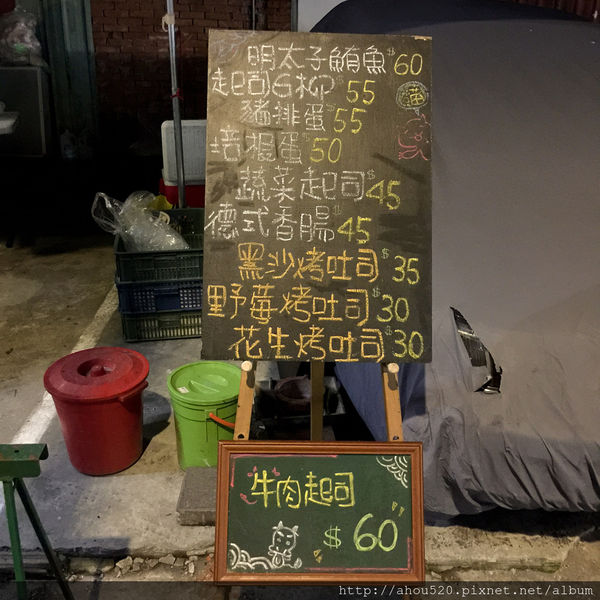 明太子鮪魚 $60
起司6柳 $55
豬排蛋 $55
培根蛋 $50
蔬菜起司 $45
德式香腸 $45
黑沙烤吐司 $35
野莓烤吐司 $30
花生烤吐司 $30
牛肉起司
$60
http://ahou520.pixnet.net/album